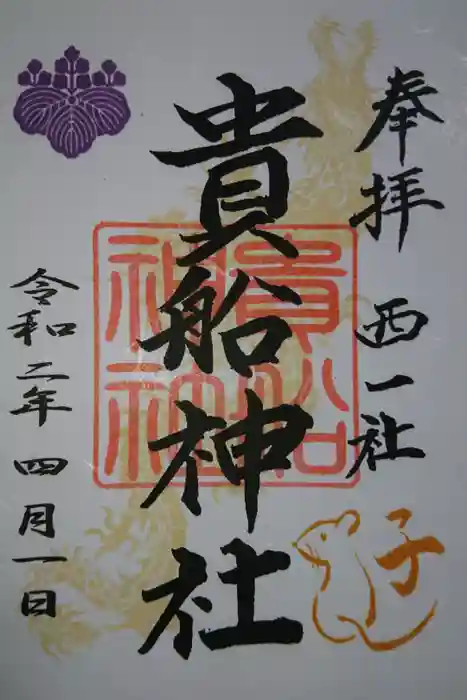 奉拝 西一社
子
貴船神社
貴船神社
令和二年 四月一日